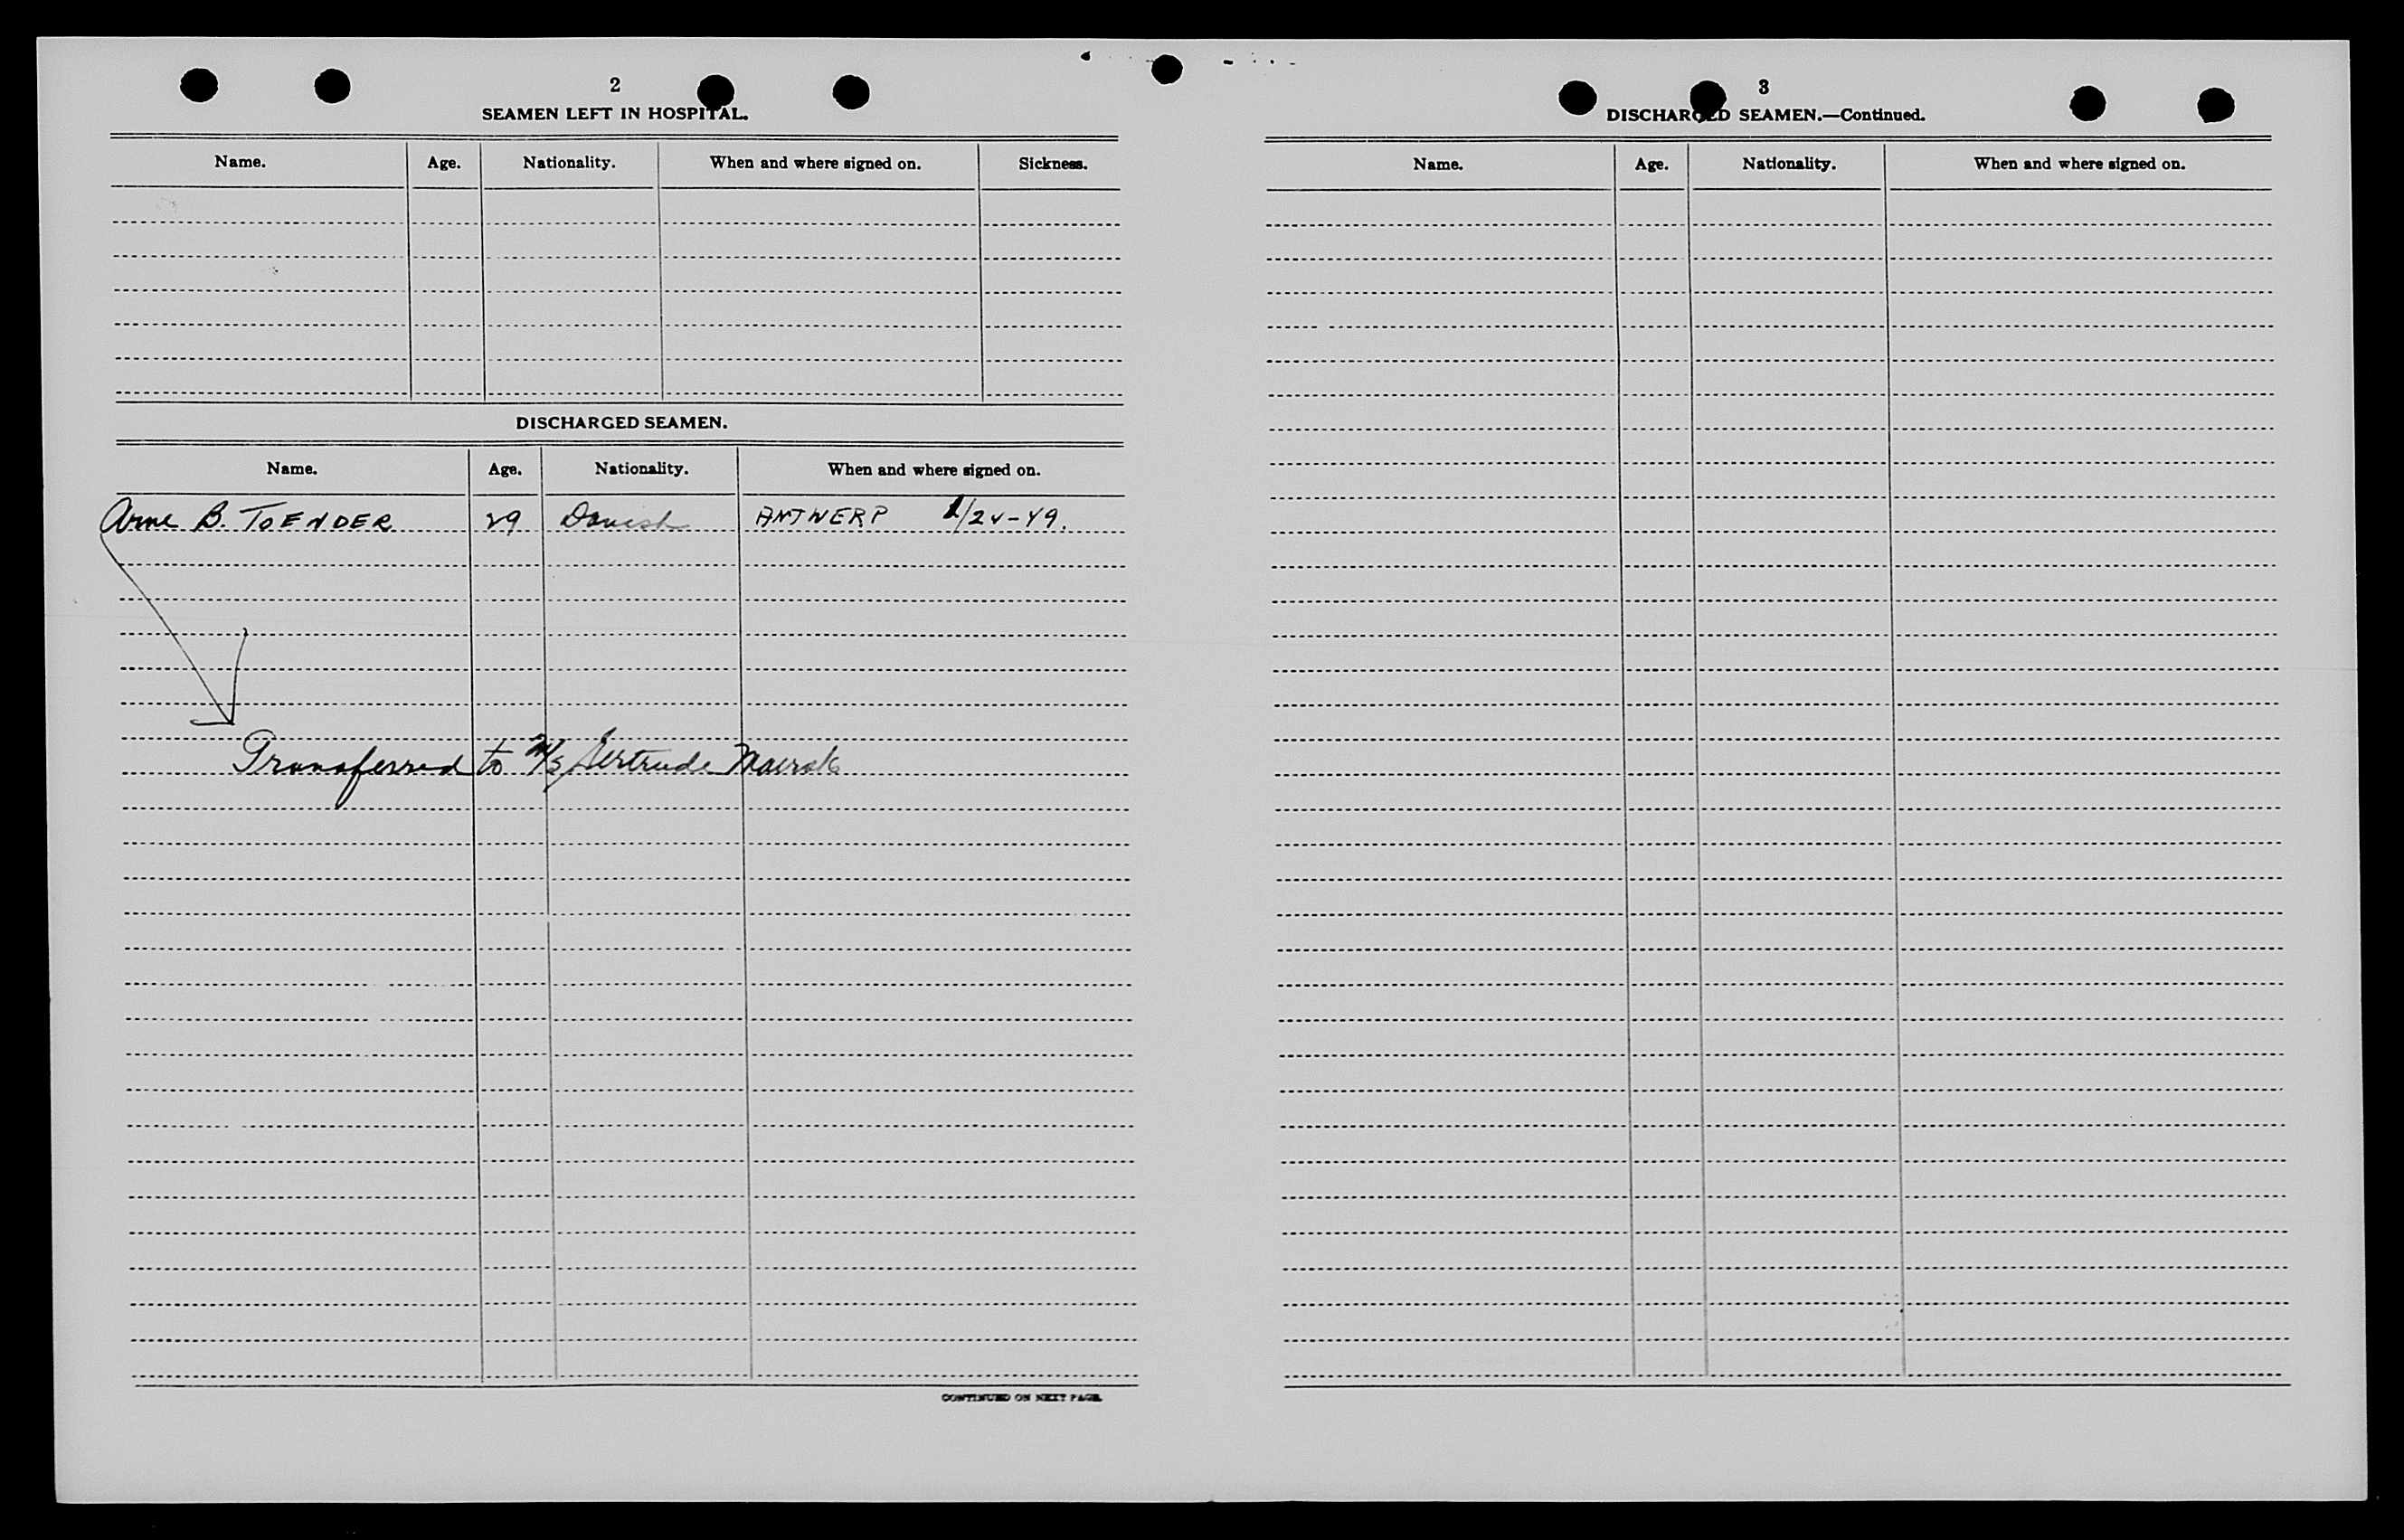 2
SEAMEN LEFT IN HOSPITAL.
Name. Age. Nationality. When and where signed on. Sickness.
DISCHARGED SEAMEN.
Name. Age. Nationality. When and where signed on.
Arne B. TOENDER 29 Danish ANTWERP 1/24-49.
Transferred to M/S Gertrude Maersk
CONTINUED ON NEXT PAGE.
3
DISCHARGED SEAMEN.—Continued.
Name. Age. Nationality. When and where signed on.